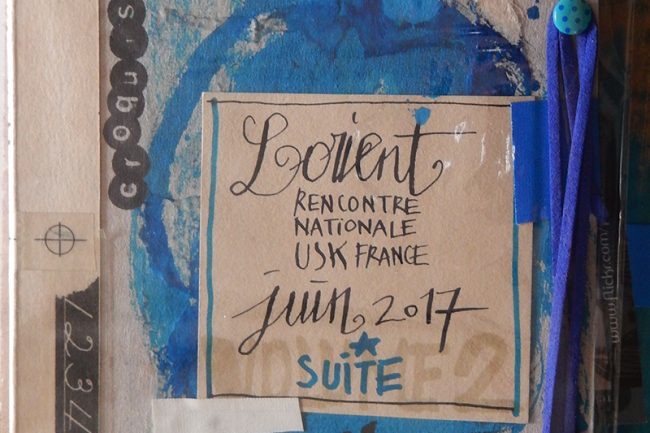 croquis
Lorient
RENCONTRE
NATIONALE
USK FRANCE
juin 2017
SUITE
1234
www.flickr.com/